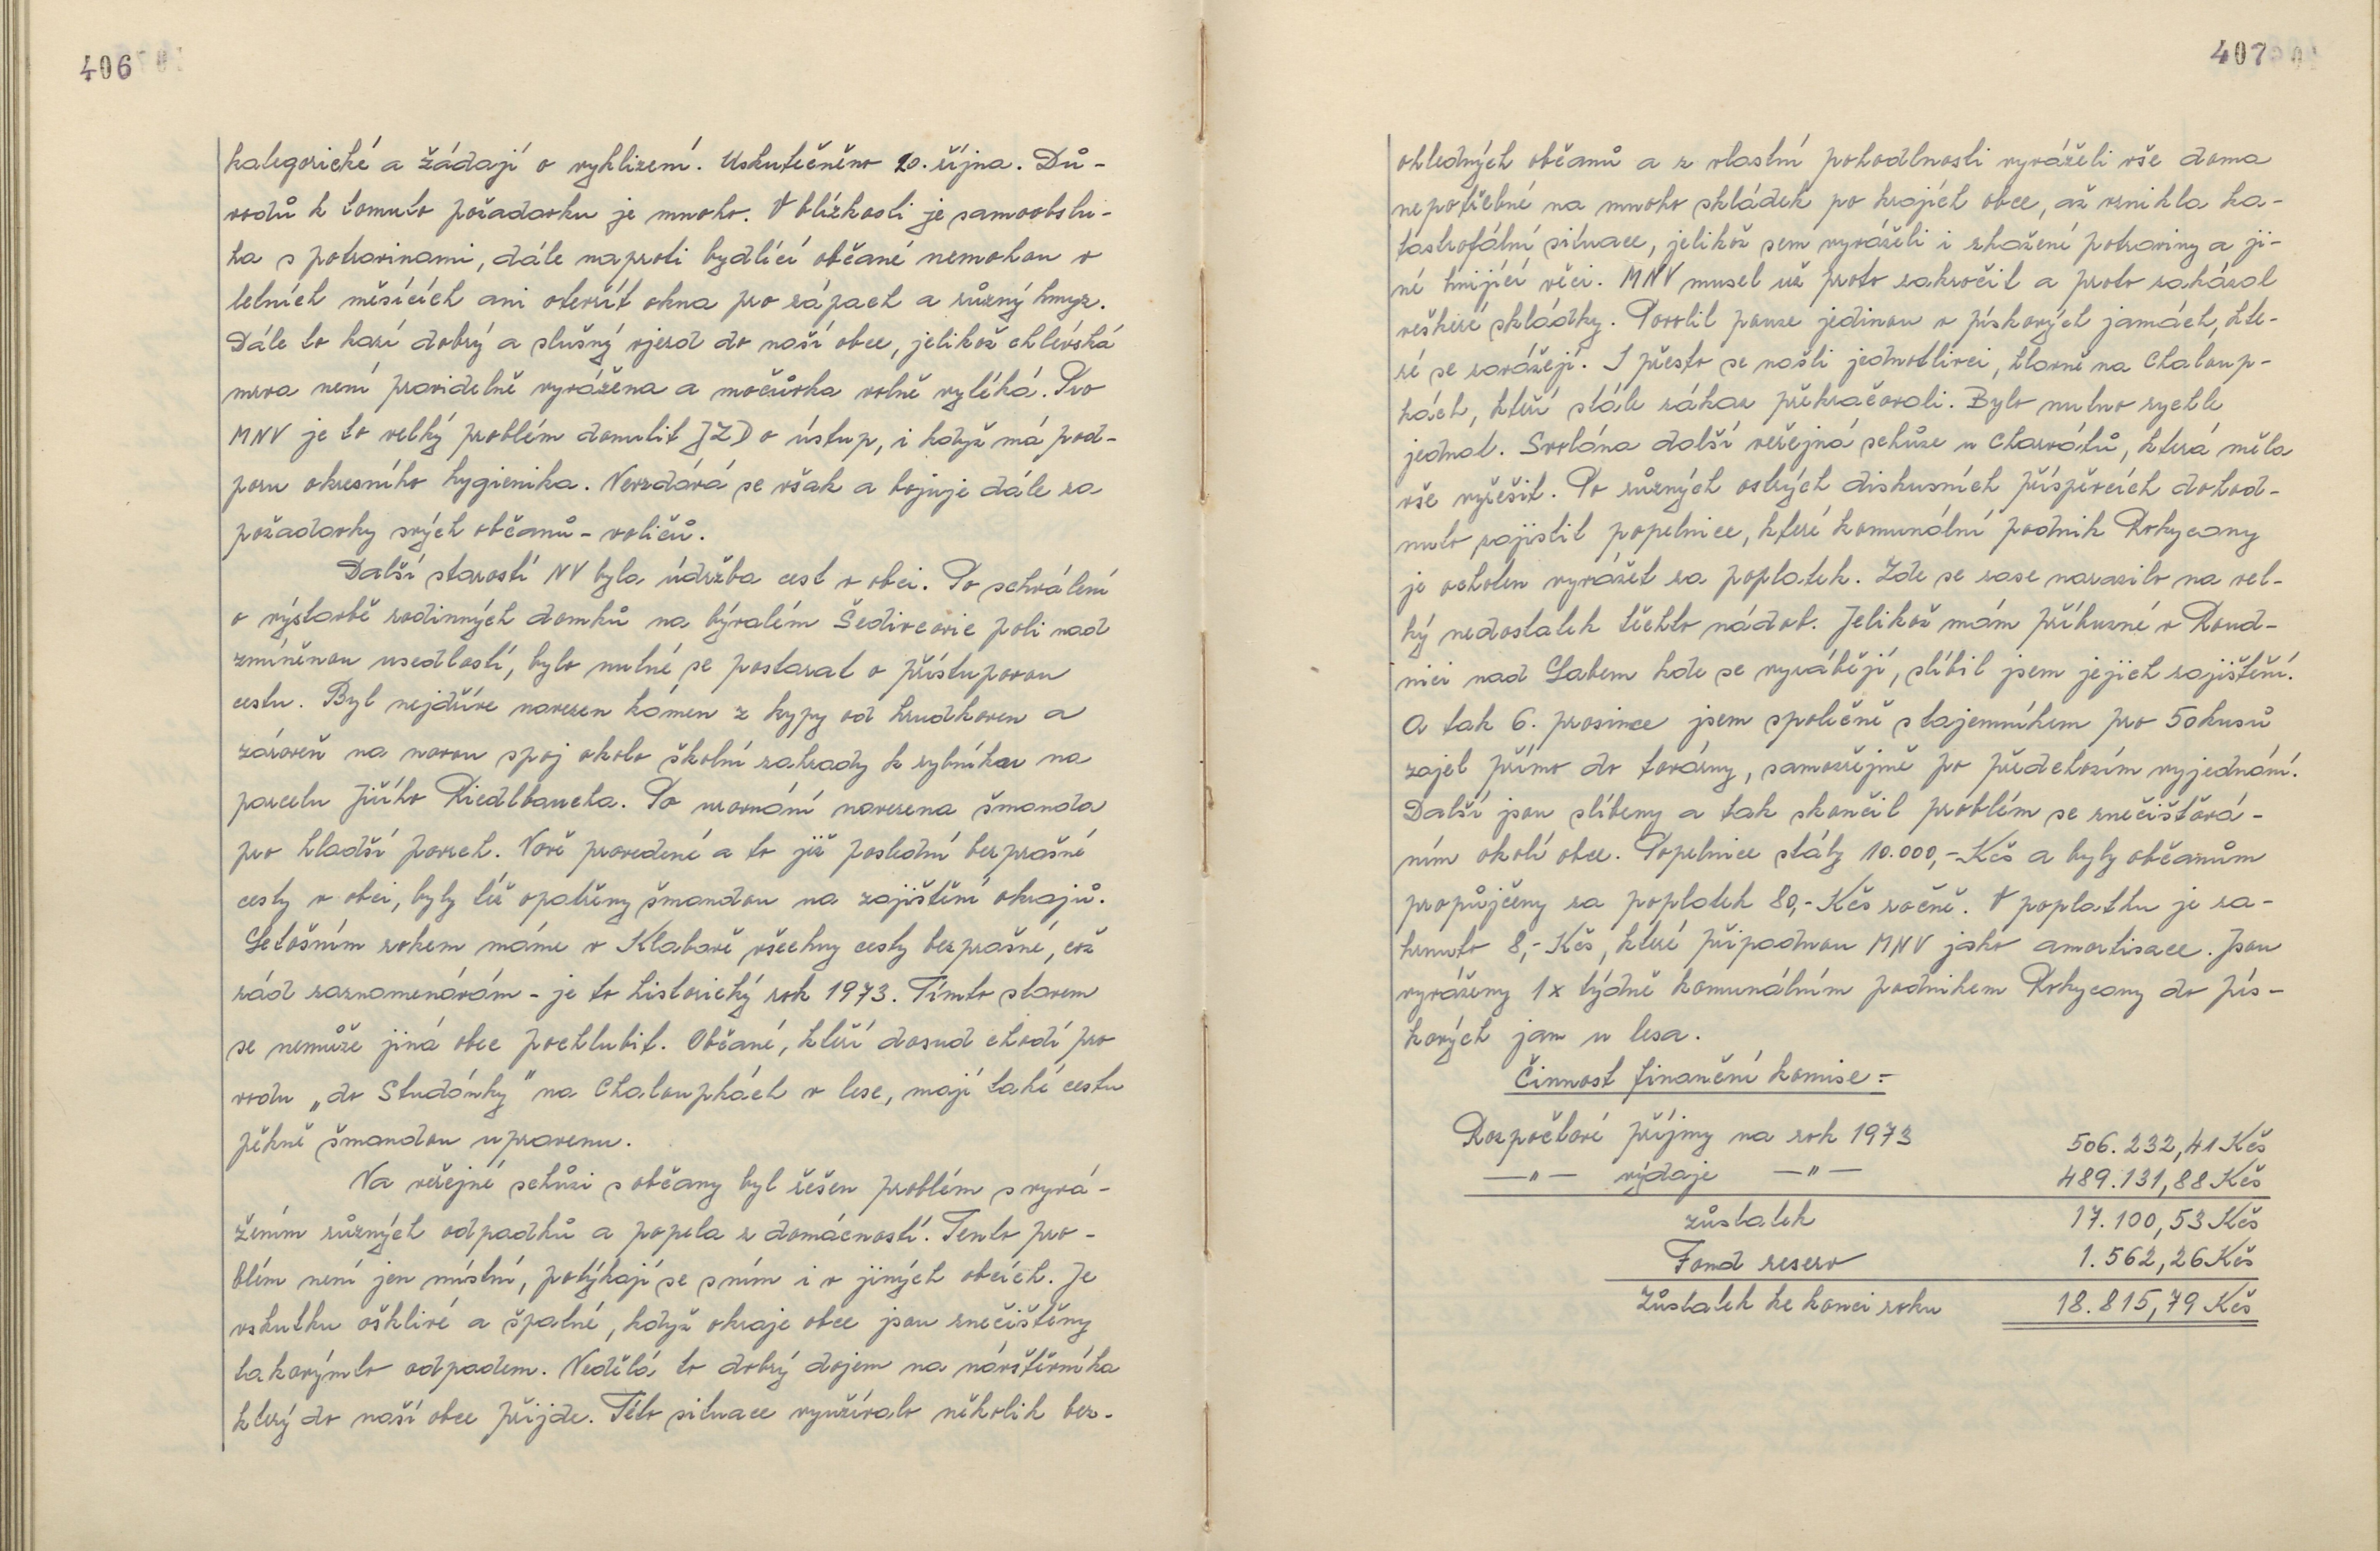 406
kategorické a žádají o vyklizení. Uskutečněno 20. října. Dů-
vodů k tomuto požadavku je mnoho. V blízkosti je samoobslu-
ha s potravinami, dále naproti bydlící občané nemohou v
letních měsících ani otevřít okna pro zápach a různý hmyz.
Dále to kazí dobrý a slušný vjezd do naší obce, jelikož chlévská
mrva není pravidelně vyvážena a močůvka volně vytéká. Pro
MNV je to velký problém donutit JZD o ústup, i když má pod-
poru okresního hygienika. Nevzdává se však a bojuje dále za
požadavky svých občanů - voličů.
Další starostí NV byla údržba cest v obci. Po schválení
o výstavbě rodinných domků na bývalém Šedivcovic poli nad
zmíněnou usedlostí, bylo nutné se postarat o přístupovou
cestu. Byl nejdříve navezen kámen z kypy od hrudkoven a
zároveň na novou spoj okolo školní zahrady k rybníku na
parcelu Jiřího Riedlbaucha. Po urovnání navezena šmanda
pro hladší povrch. Nově provedené a to již poslední bezprašné
cesty v obci, byly též opatřeny šmandou na zajištění okrajů.
Letošním rokem máme v Klabavě všechny cesty bezprašné, což
rád zaznamenávám - je to historický rok 1973. Tímto stavem
se nemůže jiná obec pochlubit. Občané, kteří dosud chodí pro
vodu „do Studánky" na Chaloupkách v lese, mají také cestu
pěkně šmandou upravenu.
Na veřejné schůzi s občany byl řešen problém s vyvá-
žením různých odpadků a popela z domácností. Tento pro-
blém není jen místní, potýkají se s ním i v jiných obcích. Je
vskutku ošklivé a špatné, když okraje obce jsou znečištěny
takovýmto odpadem. Nedělá to dobrý dojem na návštěvníka
který do naší obce přijde. Této situace využívalo několik bez-
407
ohledných občanů a z vlastní pohodlnosti vyváželi vše doma
nepotřebné na mnoho skládek po krajích obce, až vznikla ka-
tastrofální situace, jelikož sem vyváželi i zkažené potraviny a ji-
né hnijící věci. MNV musel už proto zakročit a proto zakázal
veškeré skládky. Povolil pouze jedinou v pískových jamách, kte-
ré se zavážejí. I přesto se našli jednotlivci, hlavně na Chaloup-
kách, kteří stále zákaz překračovali. Bylo nutno rychle
jednat. Svolána další veřejná schůze u Charvátů, která měla
vše vyřešit. Po různých ostrých diskusních příspěvcích dohod-
nuto zajistit popelnice, které komunální podnik Rokycany
je ochoten vyvážet za poplatek. Zde se zase narazilo na vel-
ký nedostatek těchto nádob. Jelikož mám příbuzné v Roud-
nici nad Labem kde se vyrábějí, slíbil jsem jejich zajištění.
A tak 6. prosince jsem společně s tajemníkem pro 50 kusů
zajel přímo do továrny, samozřejmě po předchozím vyjednání.
Další jsou slíbeny a tak skončil problém se znečišťová-
ním okolí obce. Popelnice stály 10.000,- Kčs a byly občanům
propůjčeny za poplatek 80,- Kčs ročně. V poplatku je za-
hrnuto 8,- Kčs, které připadnou MNV jako amortisace. Jsou
vyváženy 1x týdně komunálním podnikem Rokycany do pís-
kových jam u lesa.
Činnost finanční komise:
Rozpočtové příjmy na rok 1973 506.232,41 Kčs
—„— výdaje —„— 489.131,88 Kčs
zůstatek 17.100,53 Kčs
Fond reserv 1.562,26 Kčs
Zůstatek ke konci roku 18.815,79 Kčs